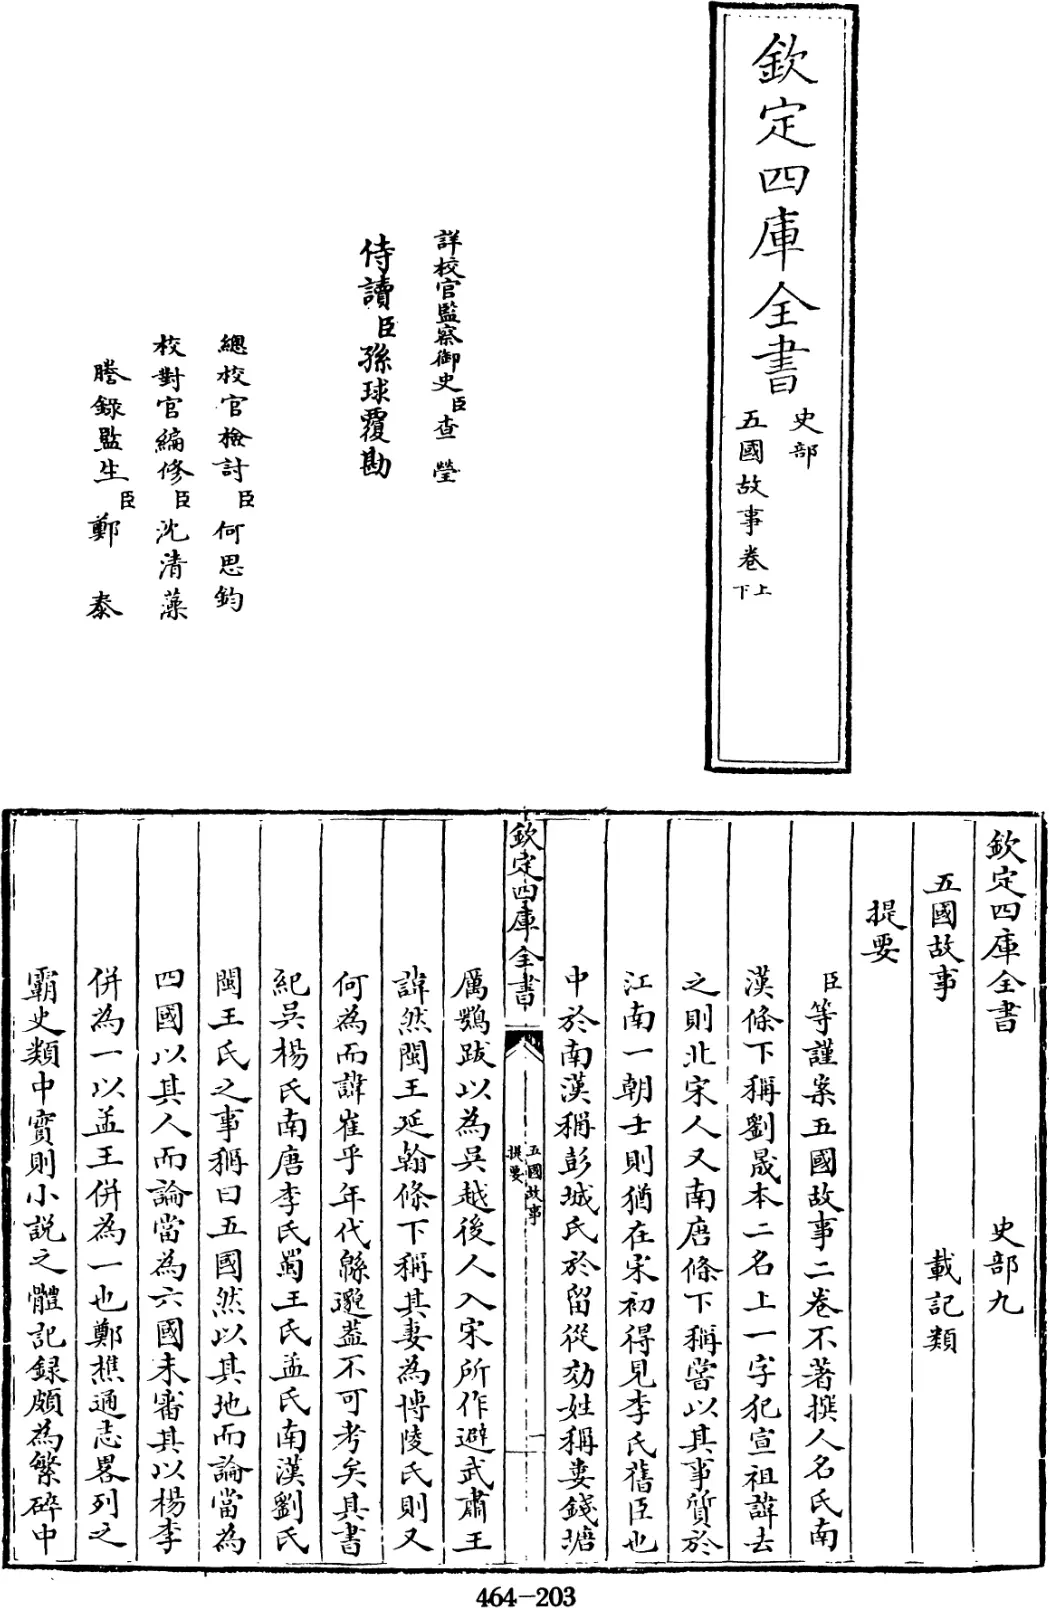 欽定四庫全書
史部
五國故事卷上下
詳校官監察御史臣查瑩
侍讀臣孫球覆勘
總校官檢討臣何思鈞
校對官編修臣沈清藻
謄錄監生臣鄭泰
欽定四庫全書 史部九
五國故事 載記類
提要
臣等謹案五國故事二卷不著撰人名氏南
漢條下稱劉晟本二名上一字犯宣祖諱去
之則北宋人又南唐條下稱嘗以其事質於
江南一朝士則猶在宋初得見李氏舊臣也
中於南漢稱彭城氏於留從効姓稱婁錢塘
欽定四庫全書
五國故事
提要
一
厲鶚跋以為吳越後人入宋所作避武肅王
諱然閩王延翰條下稱其妻為博陵氏則又
何為而諱崔乎年代緜邈蓋不可考矣其書
紀吳楊氏南唐李氏蜀王氏孟氏南漢劉氏
閩王氏之事稱曰五國然以其地而論當為
四國以其人而論當為六國未審其以楊李
併為一以孟王併為一也鄭樵通志畧列之
霸史類中實則小說之體記録頗為繁碎中
464-203